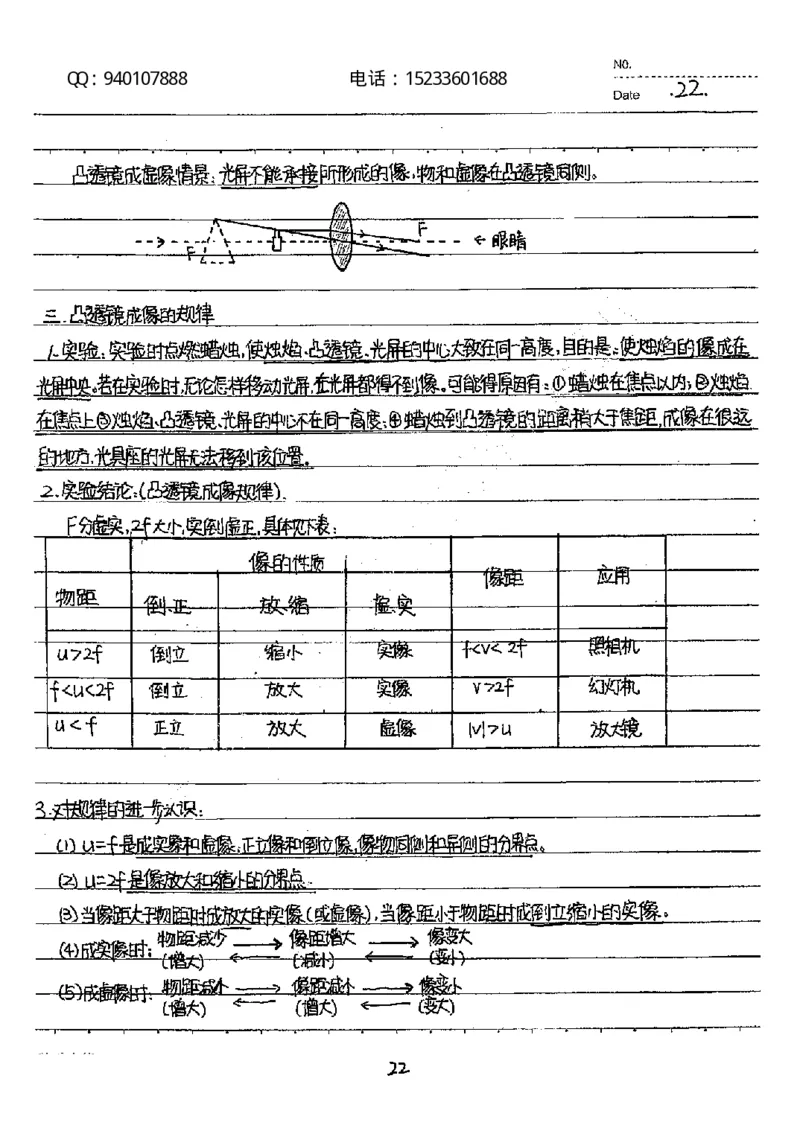 QQ：940107888 电话：15233601688 No.
Date .22.
凸透镜成虚像情景：光屏不能承接所形成的像，物和虚像在凸透镜同侧。
F F ←眼睛
三.凸透镜成像的规律
1.实验：实验时点燃蜡烛，使烛焰、凸透镜、光屏的中心大致在同一高度，目的是：使烛焰的像成在
光屏中央。若在实验时，无论怎样移动光屏，在光屏都得不到像。可能得原因有：①蜡烛在焦点以内；②烛焰
在焦点上③烛焰、凸透镜、光屏的中心不在同一高度；④蜡烛到凸透镜的距离稍大于焦距，成像在很远
的地方，光具座的光屏无法移到该位置。
2.实验结论：（凸透镜成像规律）.
F分虚实，2f大小，实倒虚正，具体见下表：
物距 像的性质 像距 应用
倒、正 放、缩 虚、实
u>2f 倒立 缩小 实像 f<v<2f 照相机
f<u<2f 倒立 放大 实像 v>2f 幻灯机
u<f 正立 放大 虚像 |v|>u 放大镜
3.对规律的进一步认识：
(1) u=f是成实象和虚像，正立像和倒立像，像物同侧和异侧的分界点。
(2) u=2f是像放大和缩小的分界点
(3)当像距大于物距时成放大的实像（或虚像），当像距小于物距时成倒立缩小的实像。
(4)成实像时： 物距减少 → 像距增大 → 像变大
(增大) ← (减小) ← (变小)
(5)成虚像时： 物距减小 → 像距减小 → 像变小
(增大) ← (增大) ← (变大)
22